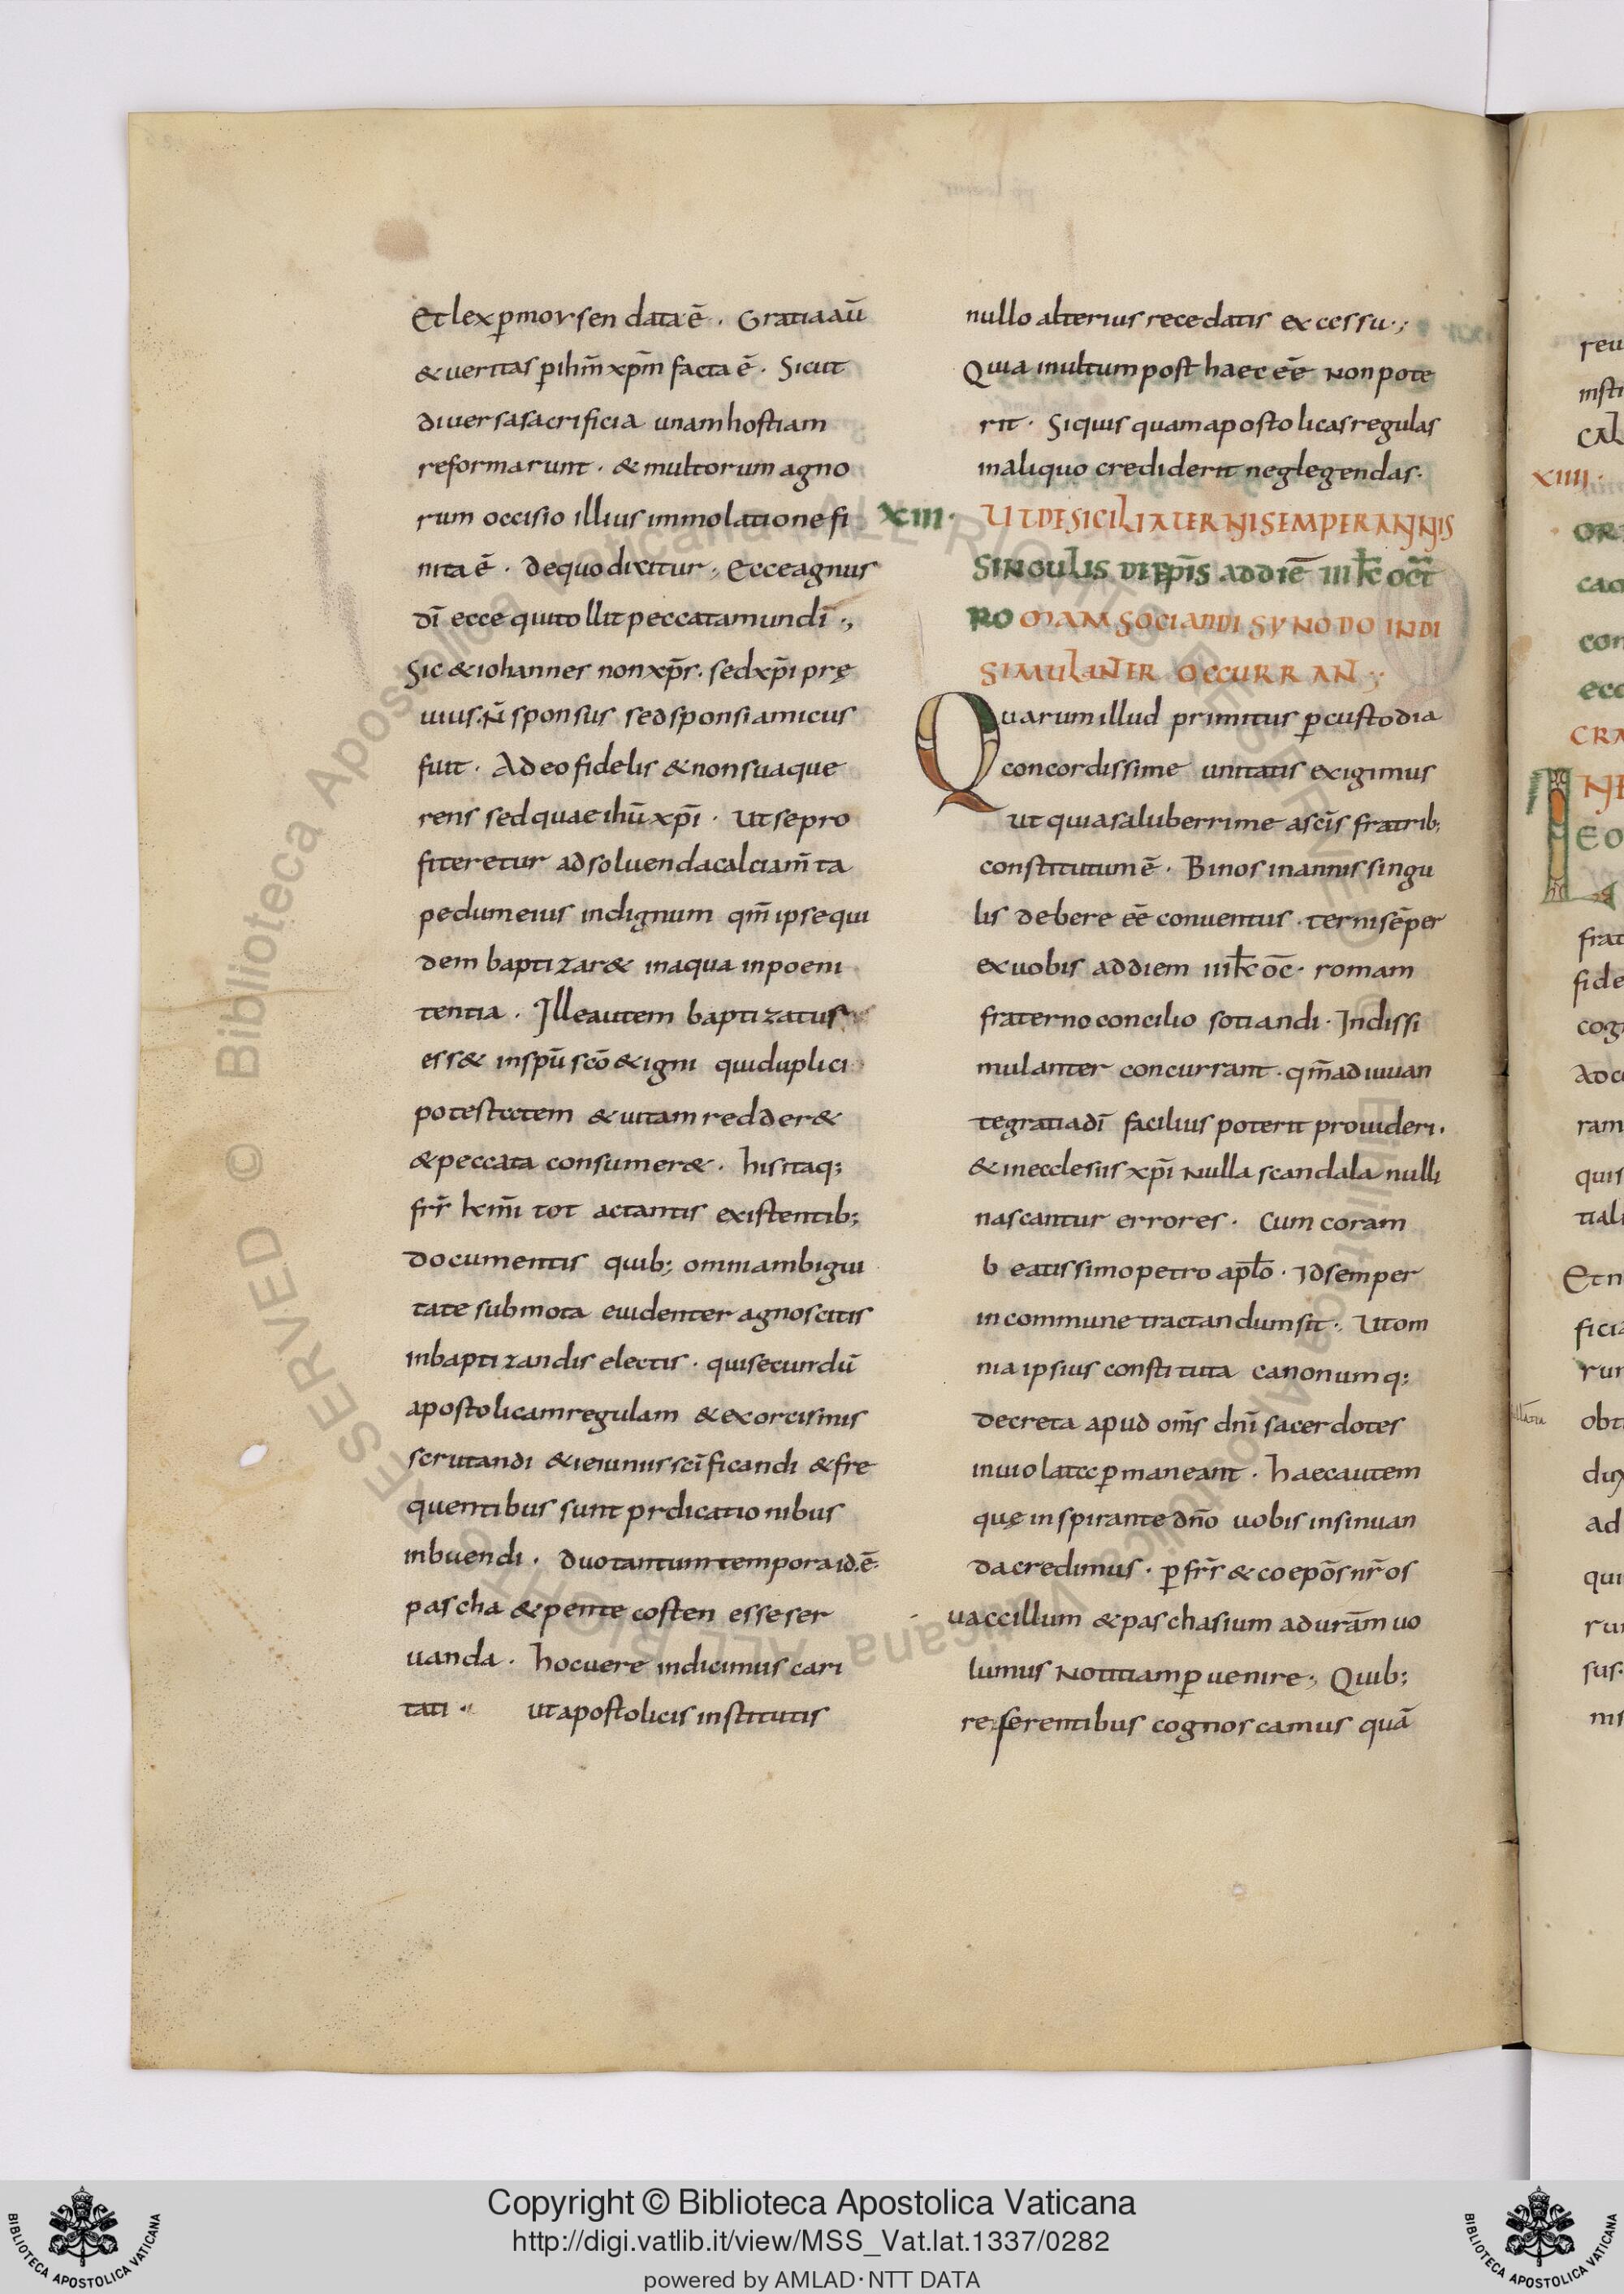 Et lex p̄ moysen data ē . Gratia aū
& ueritas p̄ ihm̄ xp̄m facta ē . Sicut
diuersa sacrificia unam hostiam
reformarunt . & multorum agno
rum occisio illius immolatione fi
nita ē . de quo dicitur ; Ecce agnus
dī ecce qui tollit peccata mundi ;
Sic & iohannes non xp̄s . sed xp̄i prę
uius . N̄ sponsus sed sponsi amicus
fuit . Adeo fidelis & non sua que
rens sed quae ihū xp̄i . Ut se pro
fiteretur ad soluenda calciam̄ta
pedum eius indignum qm̄ ipse qui
dem baptizar& in aqua in poeni
tentia . Ille autem baptizatus
ess& in spū scō & igni qui duplici
potestatem & uitam redder&
& peccata consumer& . his itaq;
fr̄r km̄i tot ac tantis existentib;
documentis quib; omni ambigui
tate submota euidenter agnoscitis
in baptizandis electis . qui secundū
apostolicam regulam & exorcismis
scrutandi & ieiuniis sc̄ificandi & fre
quentibus sunt prdicationibus
inbuendi . duo tantum tempora id . ē .
pascha & pentecosten esse ser
uanda . hoc uere indicimus cari
tati . ut apostolicis institutis
nullo alterius recedatis excessu . ;
Quia inultum post haec eē non pote
rit . Si quis quam apostolicas regulas
in aliquo crediderit neglegendas .
XIII . UT DE SICILIA TERNI SEMPER ANNIS
SINGULIS UEL EP̄IS AD DIĒ III K̄ OCT̄
ROMAM SOCIANDI SYNODO INDI
SIMULANTER OCCURRANT ;
Quarum illud primitus p̄ custodia
concordissime unitatis exigimus
ut quia saluberrime a sc̄is fratrib;
constitutum ē . Binos in annis singu
lis debere eē conuentus . terni sēper
ex uobis ad diem III k̄ oc̄ . romam
fraterno concilio sotiandi . Indissi
mulanter concurrant . qm̄ adiuuan
te gratia dī facilius poterit prouideri .
& in ecclesiis xp̄i nulla scandala nulli
nascantur errores . Cum coram
beatissimo petro apl̄o . Id semper
in commune tractandum sit ; Ut om
nia ipsius constituta canonumq;
decreta apud om̄s dn̄i sacerdotes
inuiolata p̄maneant . haec autem
quę inspirante dn̄o uobis insinuan
da credimus . p̄ fr̄s & coepōs nr̄os
uaccillum & paschasium ad urām uo
lumus notitiam p̄uenire ; Quib;
referentibus cognoscamus quā
Copyright © Biblioteca Apostolica Vaticana
http://digi.vatlib.it/view/MSS_Vat.lat.1337/0282
powered by AMLAD·NTT DATA